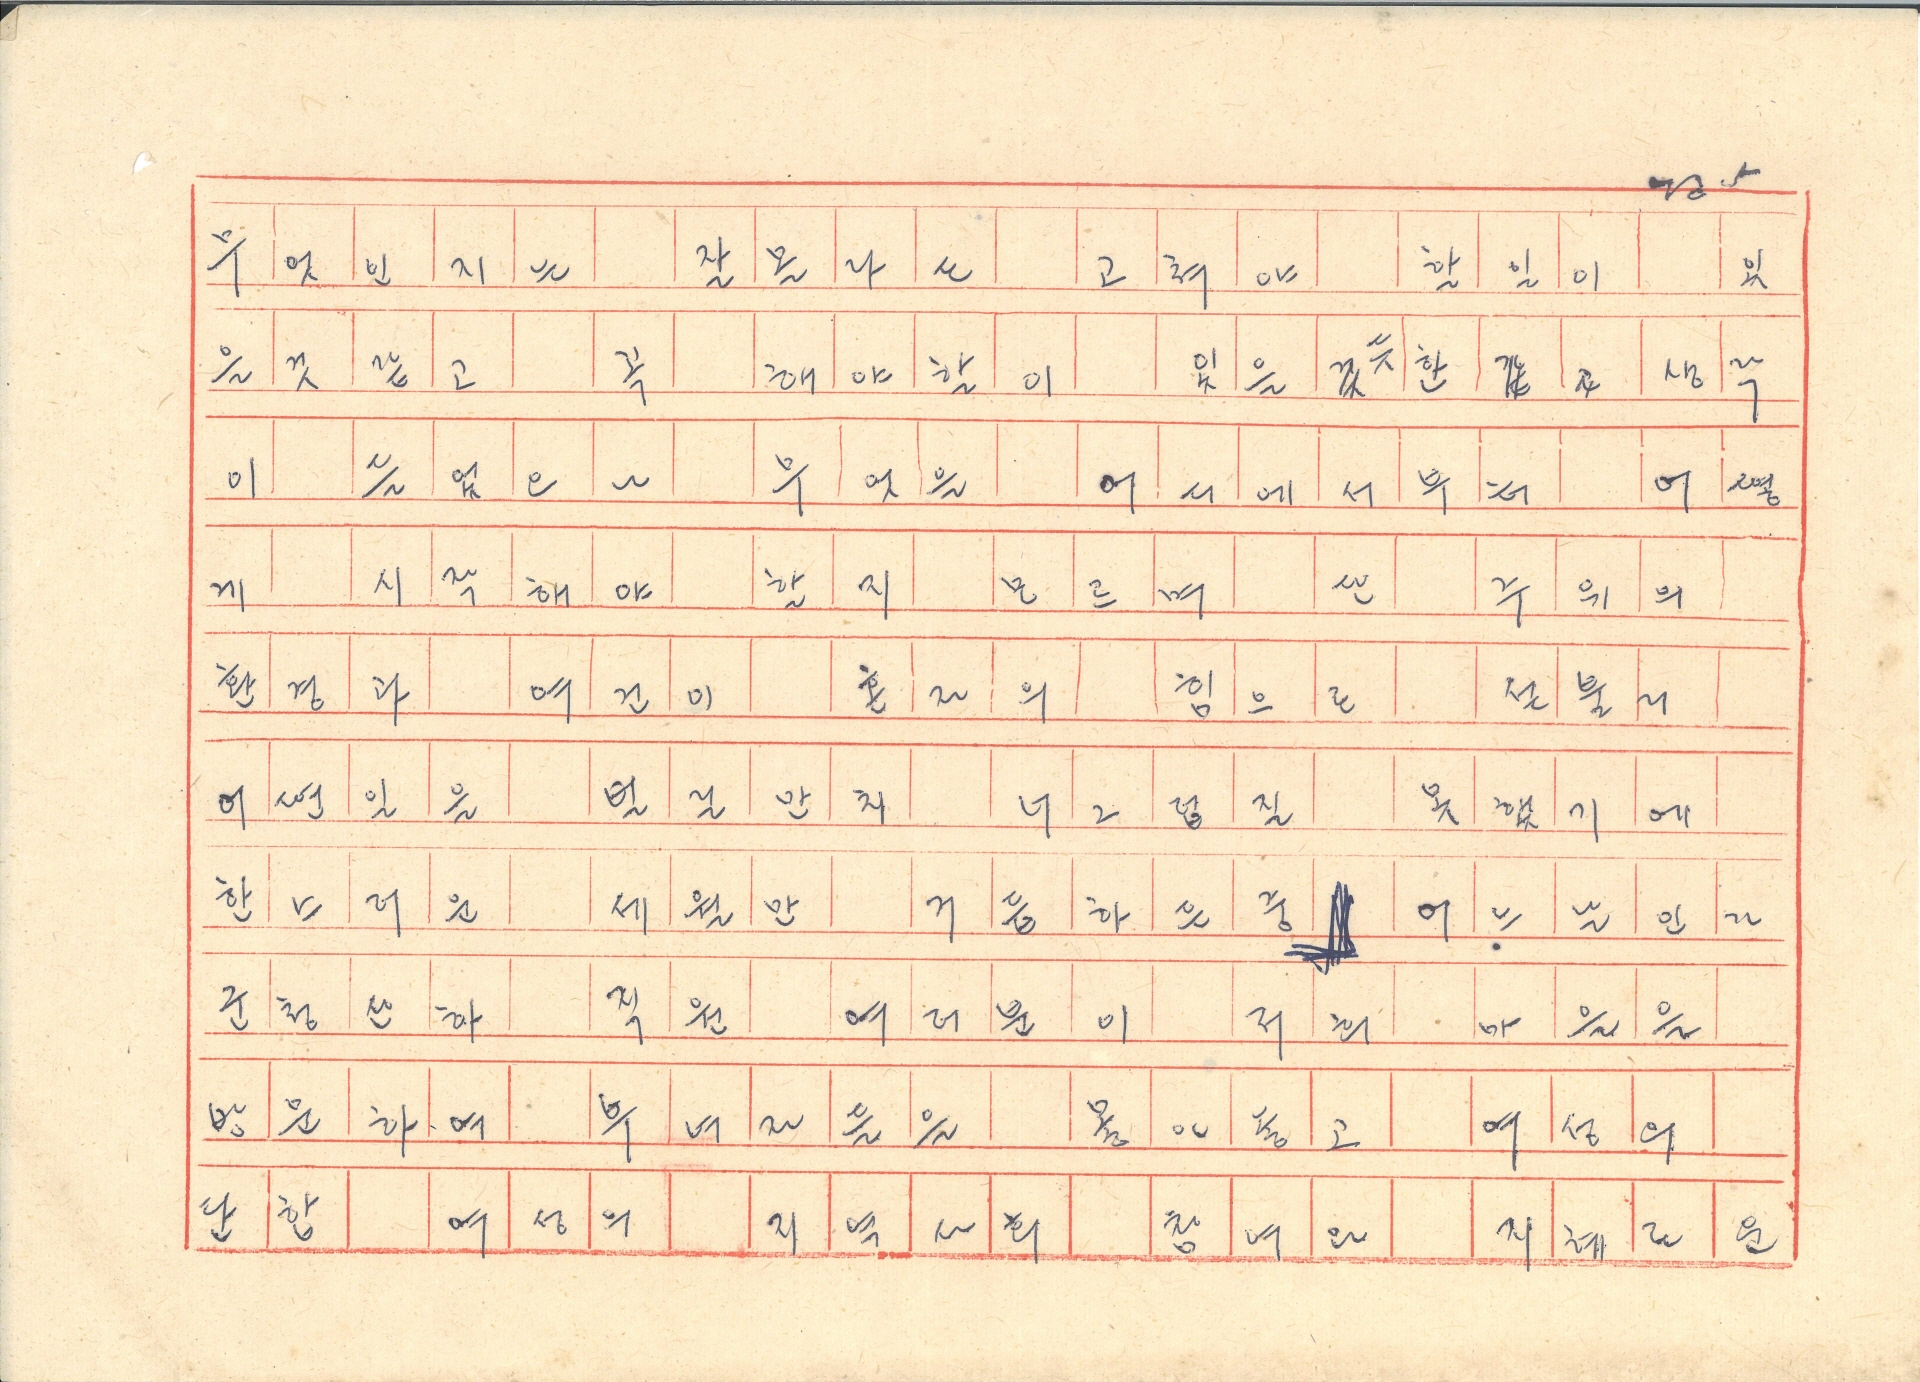 no 5
무엇인지는 잘몰라는 고쳐야 할일이 있
을것 같고 꼭 해야할이 있을것 같한 것고 생각
이 들었으나 무엇을 어서에서부터 어떻
게 시작해야 할지 모르며 또 주위의
환경과 여건이 혼자의 힘으로 섯불리
어떤일을 벌릴만치 너그럽질 못했기에
한스러운 세월만 거듭하든중 어느날인가
군청산하 직원 여러분이 저희 마을을
방문하여 부녀자들을 몽아놓고 여성의
단합 여성의 지역사회 참여와 지혜로운